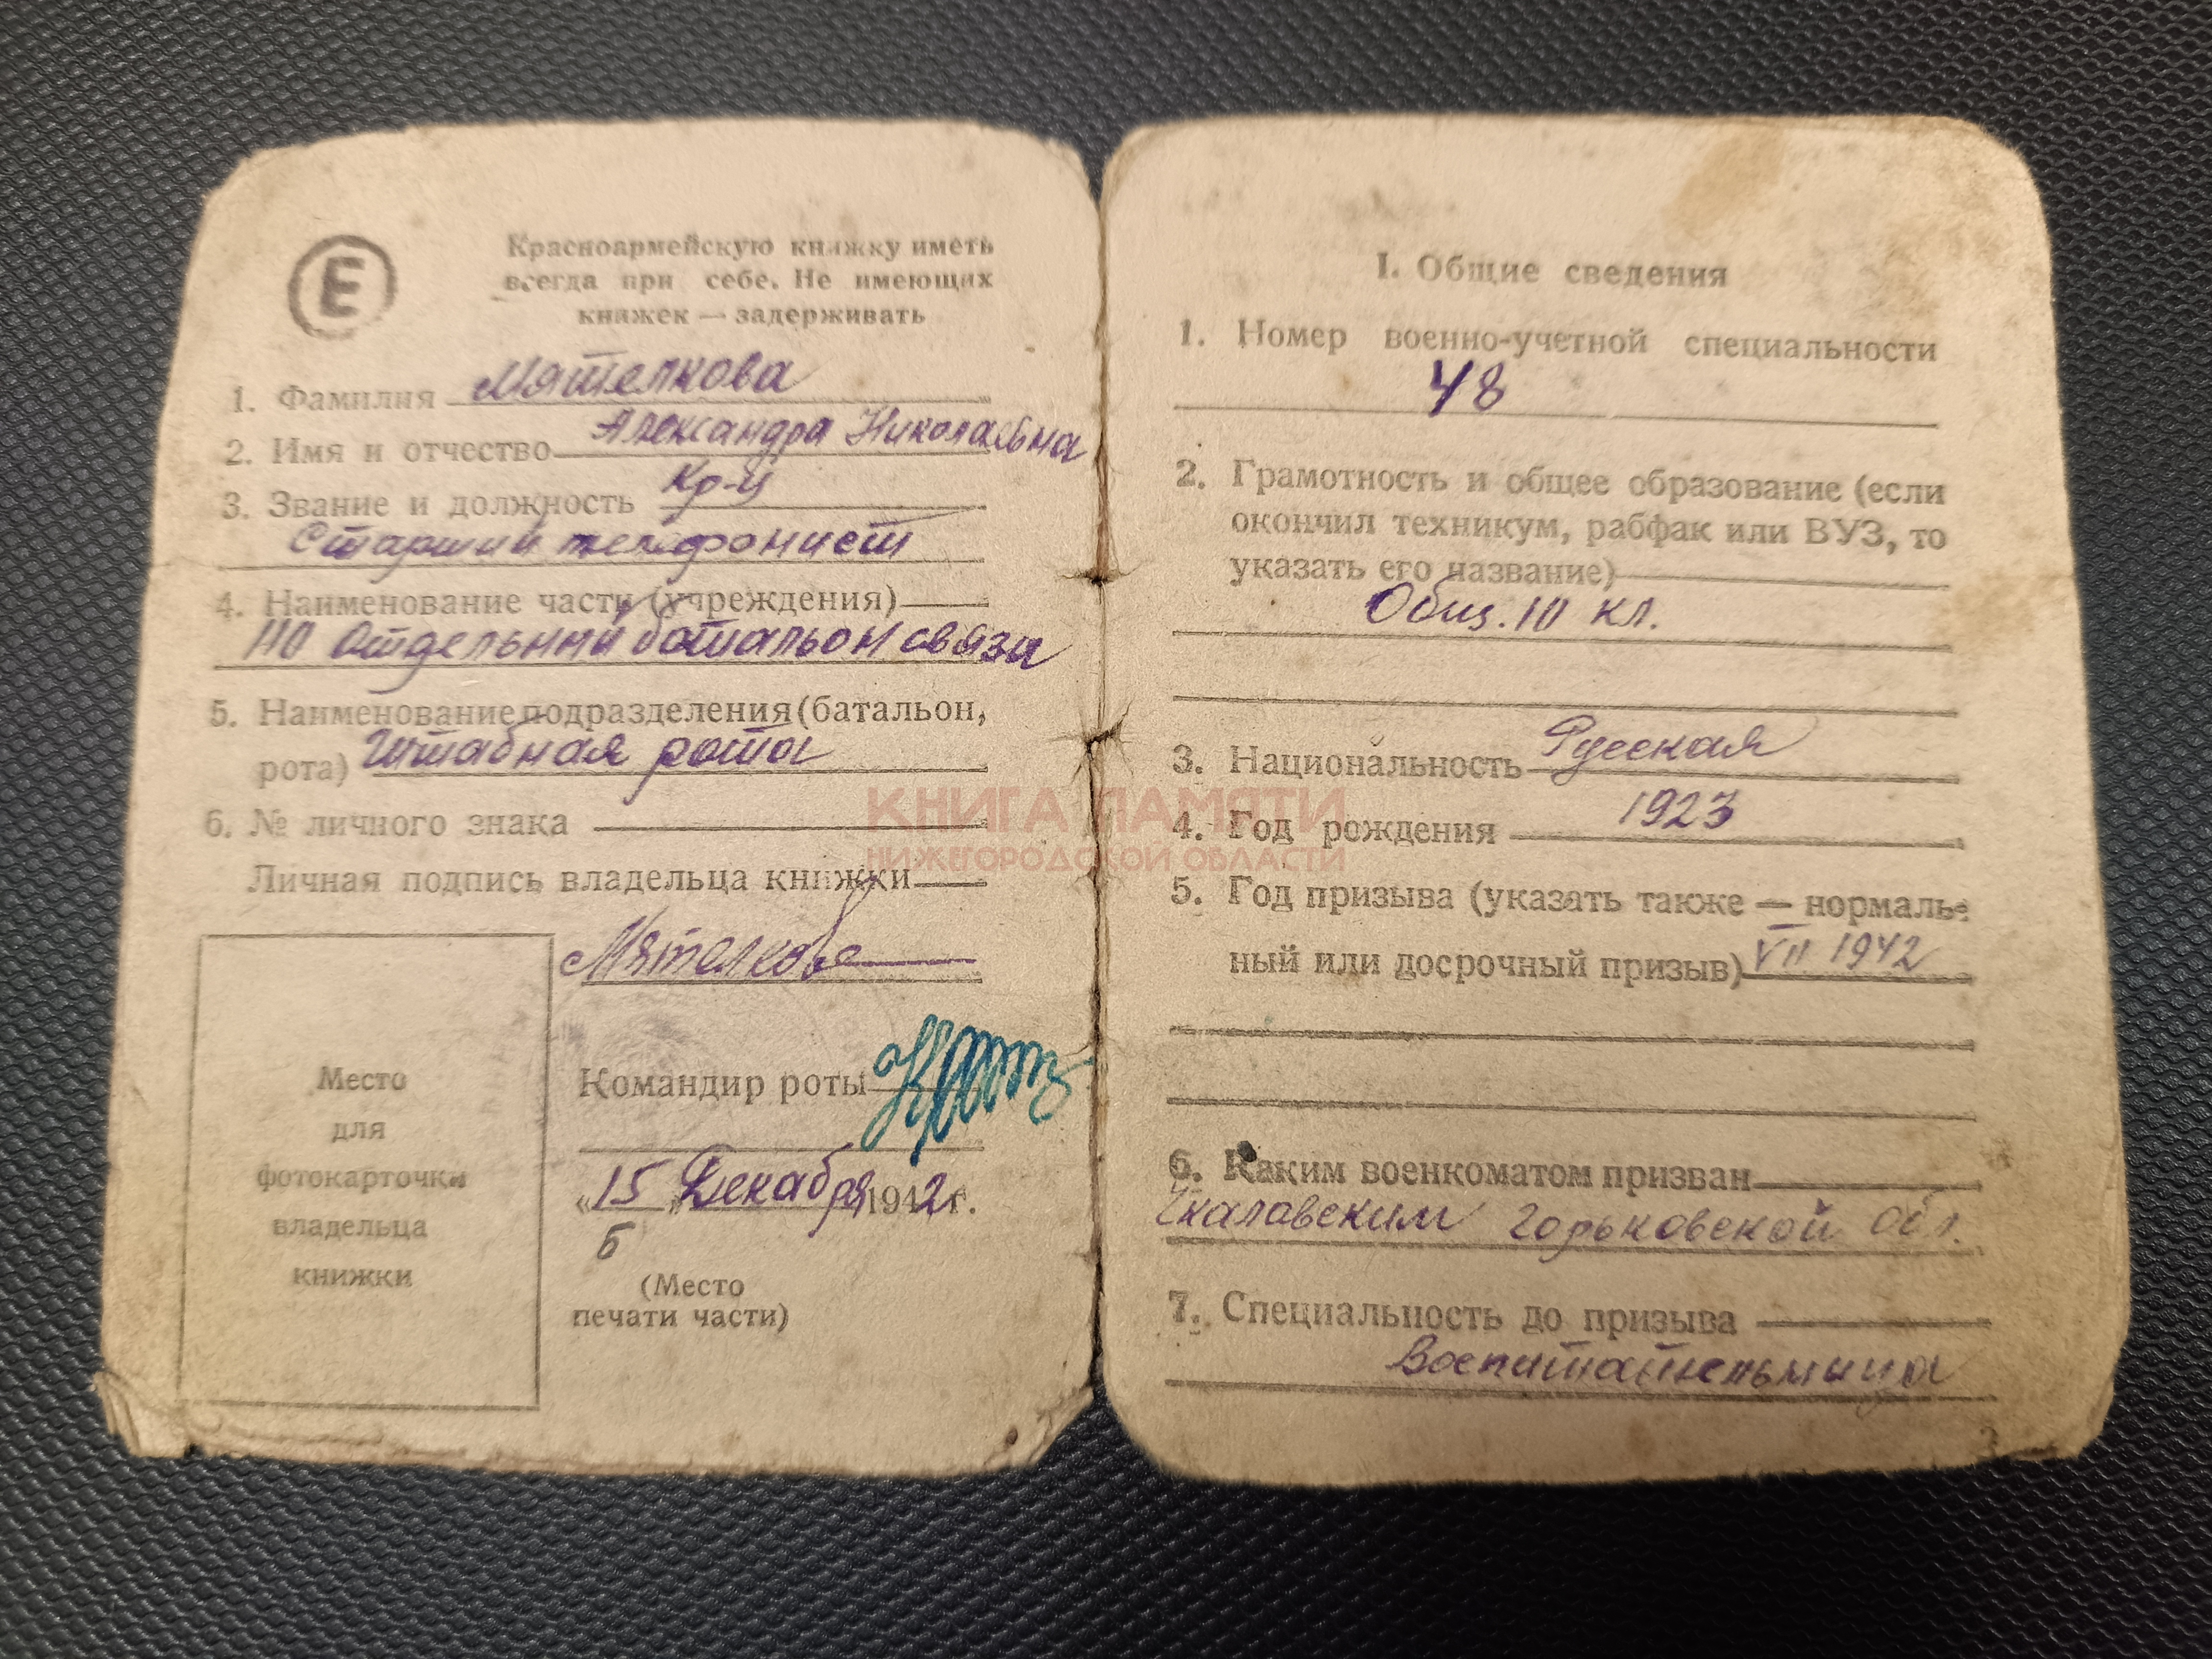 Е
Красноармейскую книжку иметь
всегда при себе. Не имеющих
книжек — задерживать
1. Фамилия Мятелкова
2. Имя и отчество Александра Николаевна
3. Звание и должность Кр-ц
Старший телефонист
4. Наименование части (учреждения)
110 Отдельный батальон связи
5. Наименование подразделения (батальон,
рота) Штабная рота
6. № личного знака
Личная подпись владельца книжки
Мятелкова
Место
для
фотокарточки
владельца
книжки
Командир роты
«15» Декабря 1942 г.
Б
(Место
печати части)
I. Общие сведения
1. Номер военно-учетной специальности
48
2. Грамотность и общее образование (если
окончил техникум, рабфак или ВУЗ, то
указать его название)
Общ. 10 кл.
3. Национальность Русская
4. Год рождения 1923
5. Год призыва (указать также — нормаль-
ный или досрочный призыв) VII 1942
6. Каким военкоматом призван
Чкаловским Горьковской обл.
7. Специальность до призыва
Воспитательница
КНИГА ПАМЯТИ
НИЖЕГОРОДСКОЙ ОБЛАСТИ